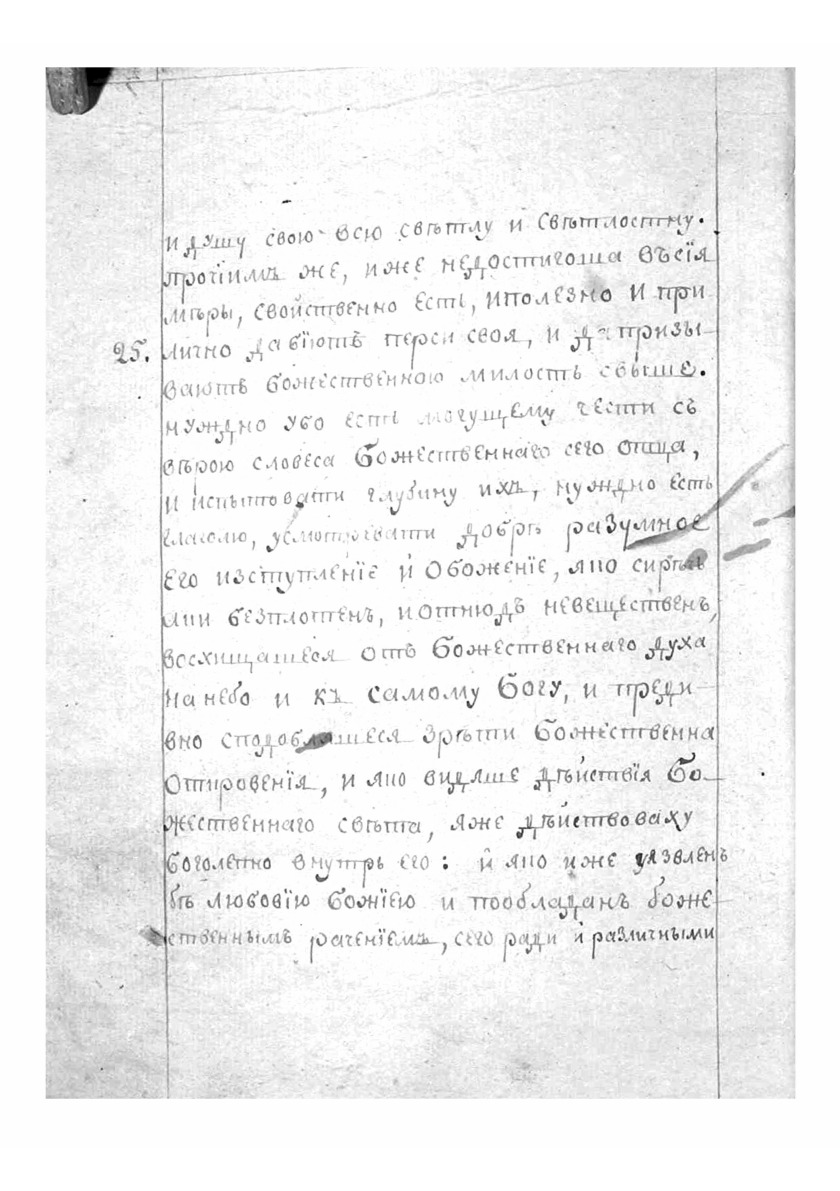 и душу свою всю свѣтлу и свѣтлостну.
прочіимъ же, иже недостигоша въ сїя
мѣры, свойственно есть, иполезно и при
25. лично да біютъ перси своя, и да призы-
ваютъ божественною милость свыше.
нуждно убо есть могущему чести съ
вѣрою словеса Божественнаго сего отца,
и испытовати глубину ихъ, нуждно есть
глаголю, усмотревати добрѣ разумное
Его изступленїе и Обоженїе, яко сирѣчь
аки безплотенъ, иотнюдъ невещественъ,
восхищашеся отъ Божественнаго духа
на небо и къ самому Богу, и преди-
вно сподобляшеся зрѣти Божественна
Откровенїя, и яко видяше дѣйствїя Бо-
жественнаго свѣта, яже дѣйствоваху
боголепно внутрь его: и яко иже уязвленъ
бѣ любовїю божїею и пообладанъ боже-
ственнымъ раченїемъ, сего ради и различными